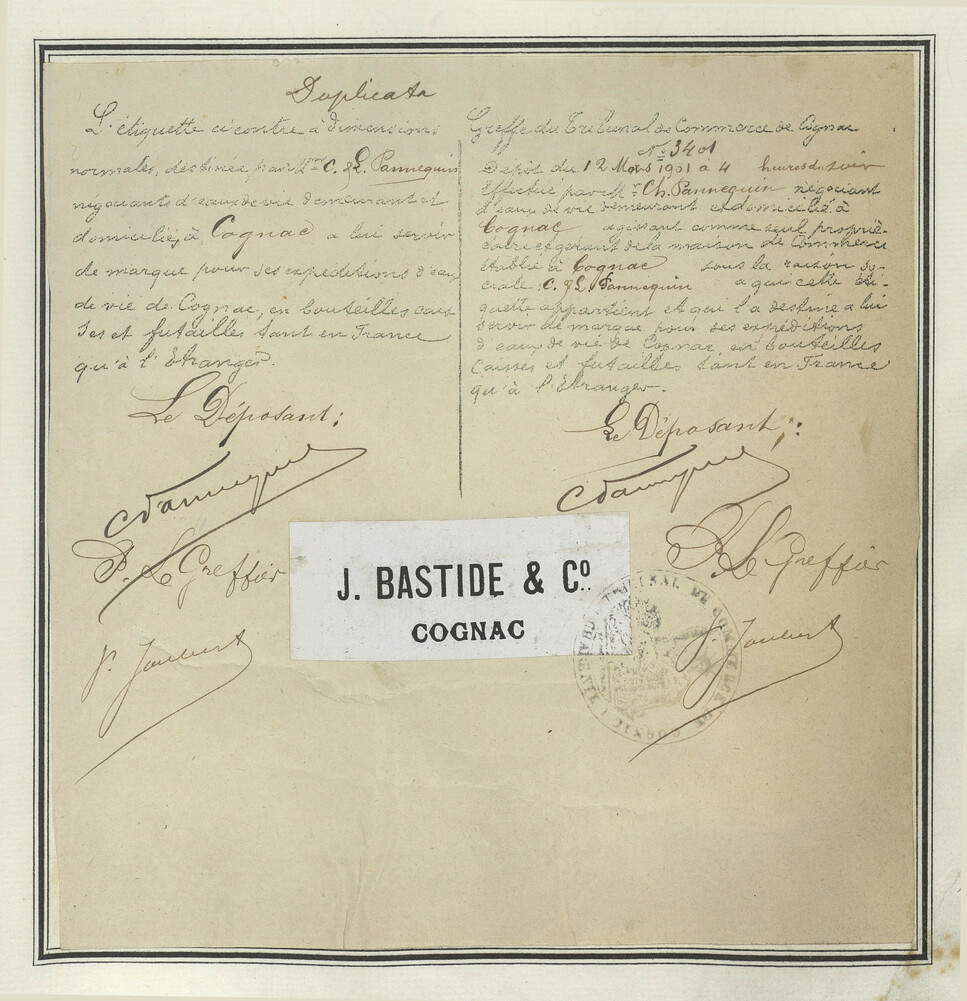 Duplicata
L'étiquette ci contre à dimensions
normales, destinée par Mrs C. & L. Pannequin
négociants d'eaux de vie demeurant et
domiciliés à Cognac a lui servir
de marque pour ses expéditions d'eau
de vie de Cognac, en bouteilles cais
ses et futailles tant en France
qu'à l'Etranger.
Le Déposant:
C Pannequin
P. Le Greffier
P. Joubert
Greffe du Tribunal de Commerce de Cognac
No 3401
Dépôt du 12 Mars 1901 à 4 heures du soir
Effectué par Mr Ch. Pannequin négociant
d'eaux de vie demeurant et domicilié à
Cognac agissant comme seul proprié-
taire et gérant de la maison de Commerce
établie à Cognac sous la raison so-
ciale C. & L. Pannequin a qui cette éti-
quette appartient et qui l'a destinée a lui
servir de marque pour ses expéditions
d'eaux de vie de Cognac en bouteilles
caisses et futailles tant en France
qu'à l'Etranger.
Le Déposant:
C Pannequin
P. Le Greffier
P. Joubert
J. BASTIDE & Co.
COGNAC
TRIBUNAL DE COMMERCE DE COGNAC